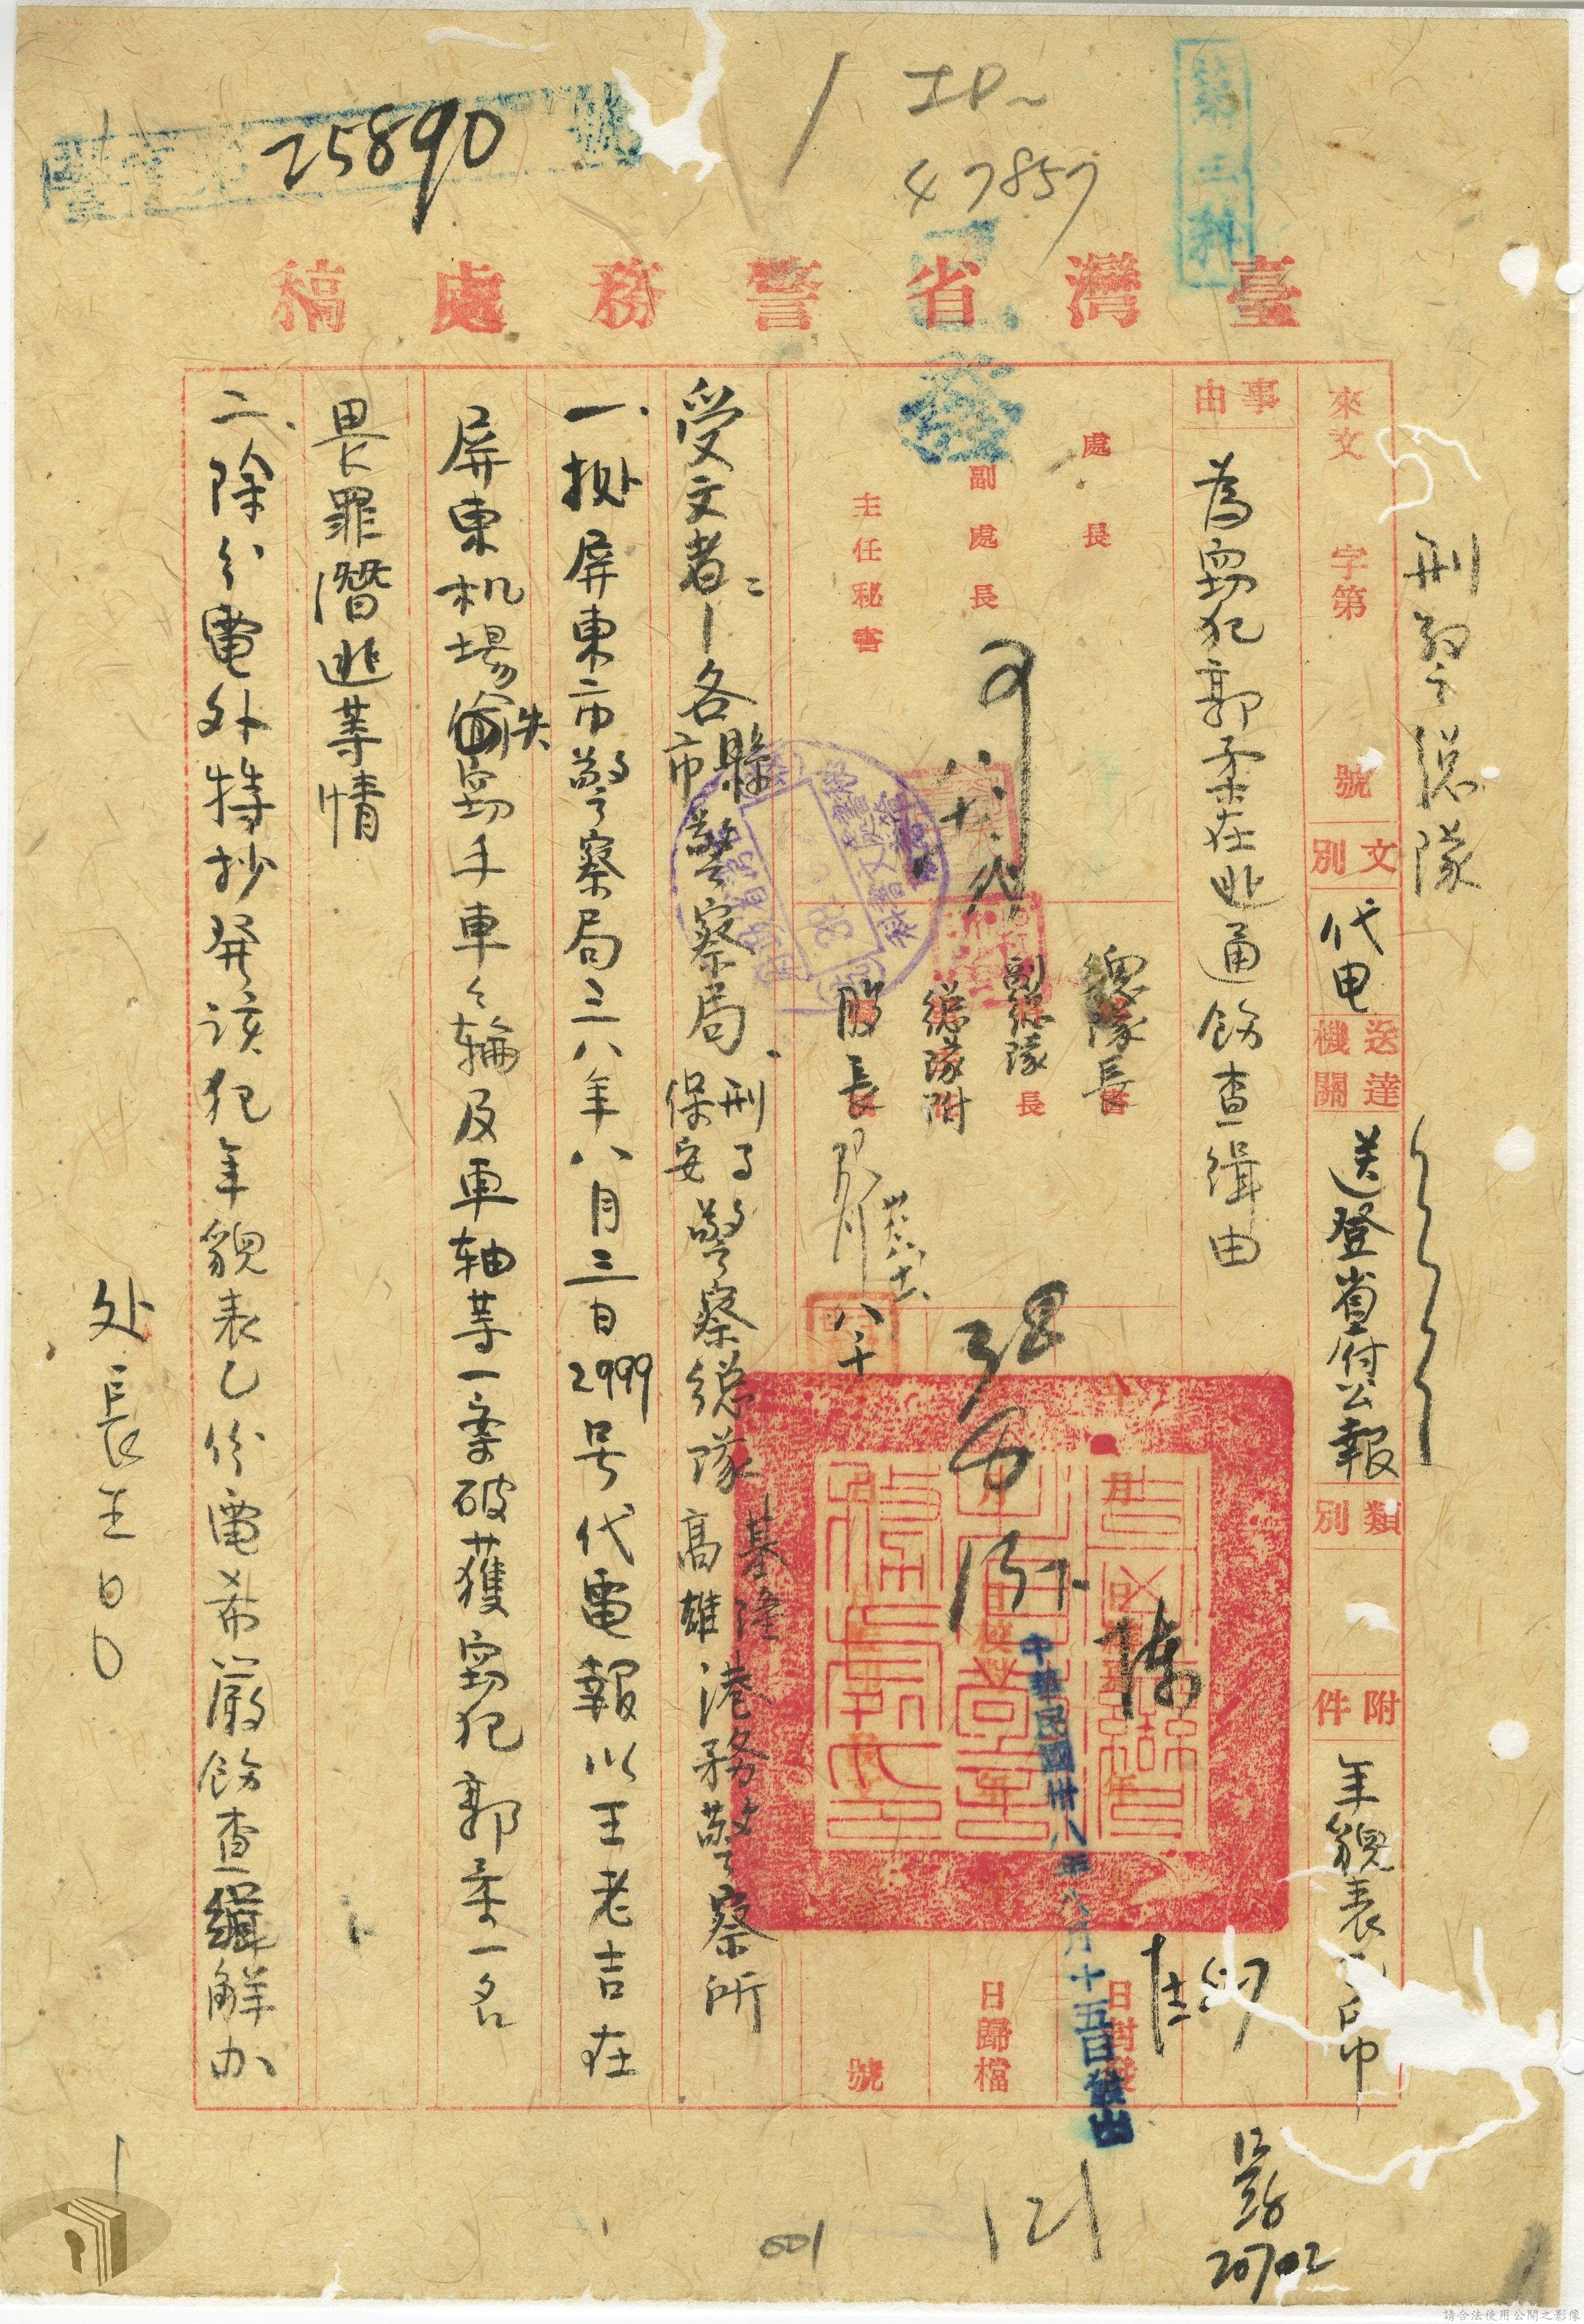 25890
47857
第三科
臺灣省警務處稿
刑警總隊
來文 字第 號
文別 代電
送達機關 送登省府公報
類別
附件 年貌表
事由 為竊犯郭柔在逃通飭查緝由
處長
副處長
主任秘書
總隊長
副總隊長
總隊附
股長
中華民國卅八年八月十五日發出
日封發
日歸檔
號
受文者:各縣市警察局、刑事保安警察總隊 基隆高雄港務警察所
一、据屏東市警察局三八年八月三日2999号代電報以王老吉在
屏東机場失竊手車々輪及車軸等一案破獲竊犯郭柔一名
畏罪潛逃等情
二、除分電外特抄発該犯年貌表乙份電希嚴飭查緝解办
处長王00
發
121
001
20702
請合法使用公開之影像